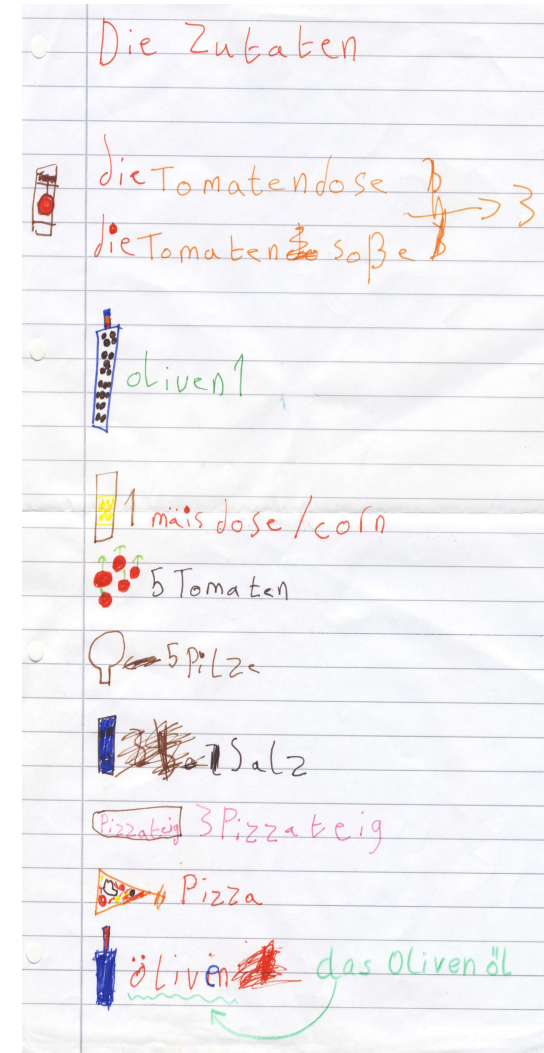 Die Zutaten
die Tomatendose
→ 3
die Tomaten soße
oliven 1
1 mäis dose/corn
5 Tomaten
5 Pilze
1 Salz
Pizzateig 3 Pizzateig
Pizza
öliven das Olivenöl